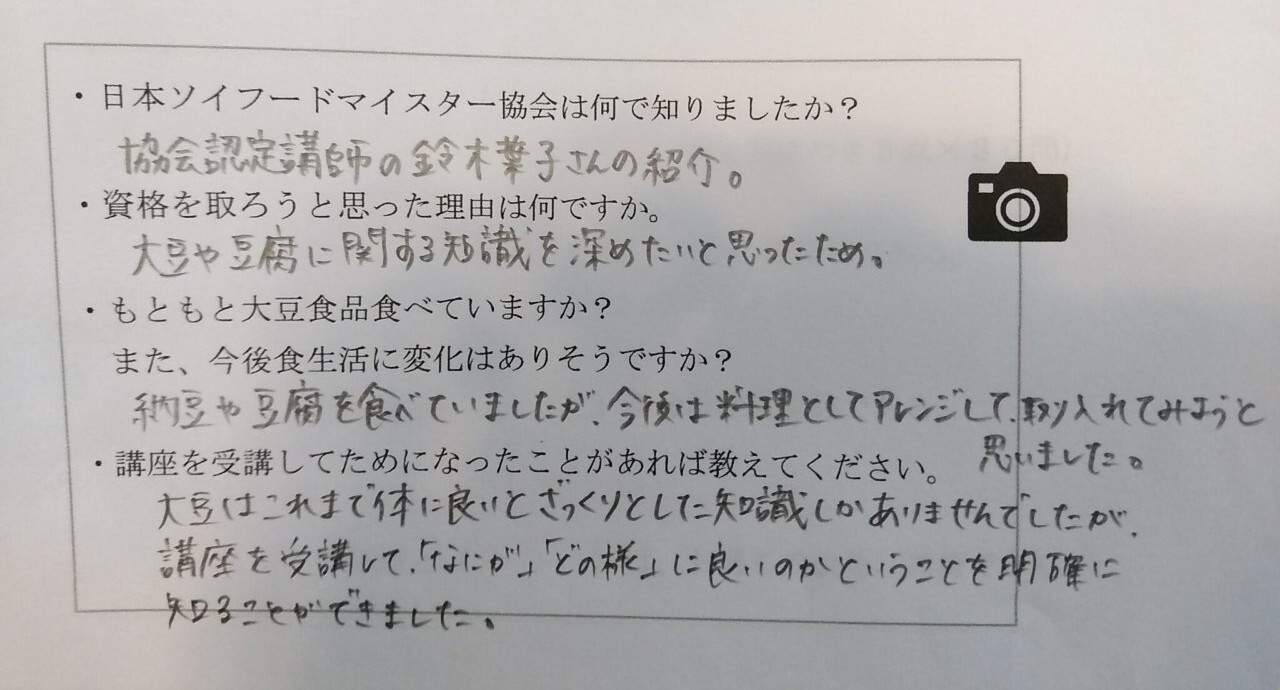 ・日本ソイフードマイスター協会は何で知りましたか？
協会認定講師の鈴木葉子さんの紹介。
・資格を取ろうと思った理由は何ですか。
大豆や豆腐に関する知識を深めたいと思ったため。
・もともと大豆食品食べていますか？
また、今後食生活に変化はありそうですか？
納豆や豆腐を食べていましたが、今後は料理としてアレンジして、取り入れてみようと
思いました。
・講座を受講してためになったことがあれば教えてください。
大豆はこれまで体に良いとざっくりとした知識しかありませんでしたが、
講座を受講して、「なにが」「どの様」に良いのかということを明確に
知ることができました。